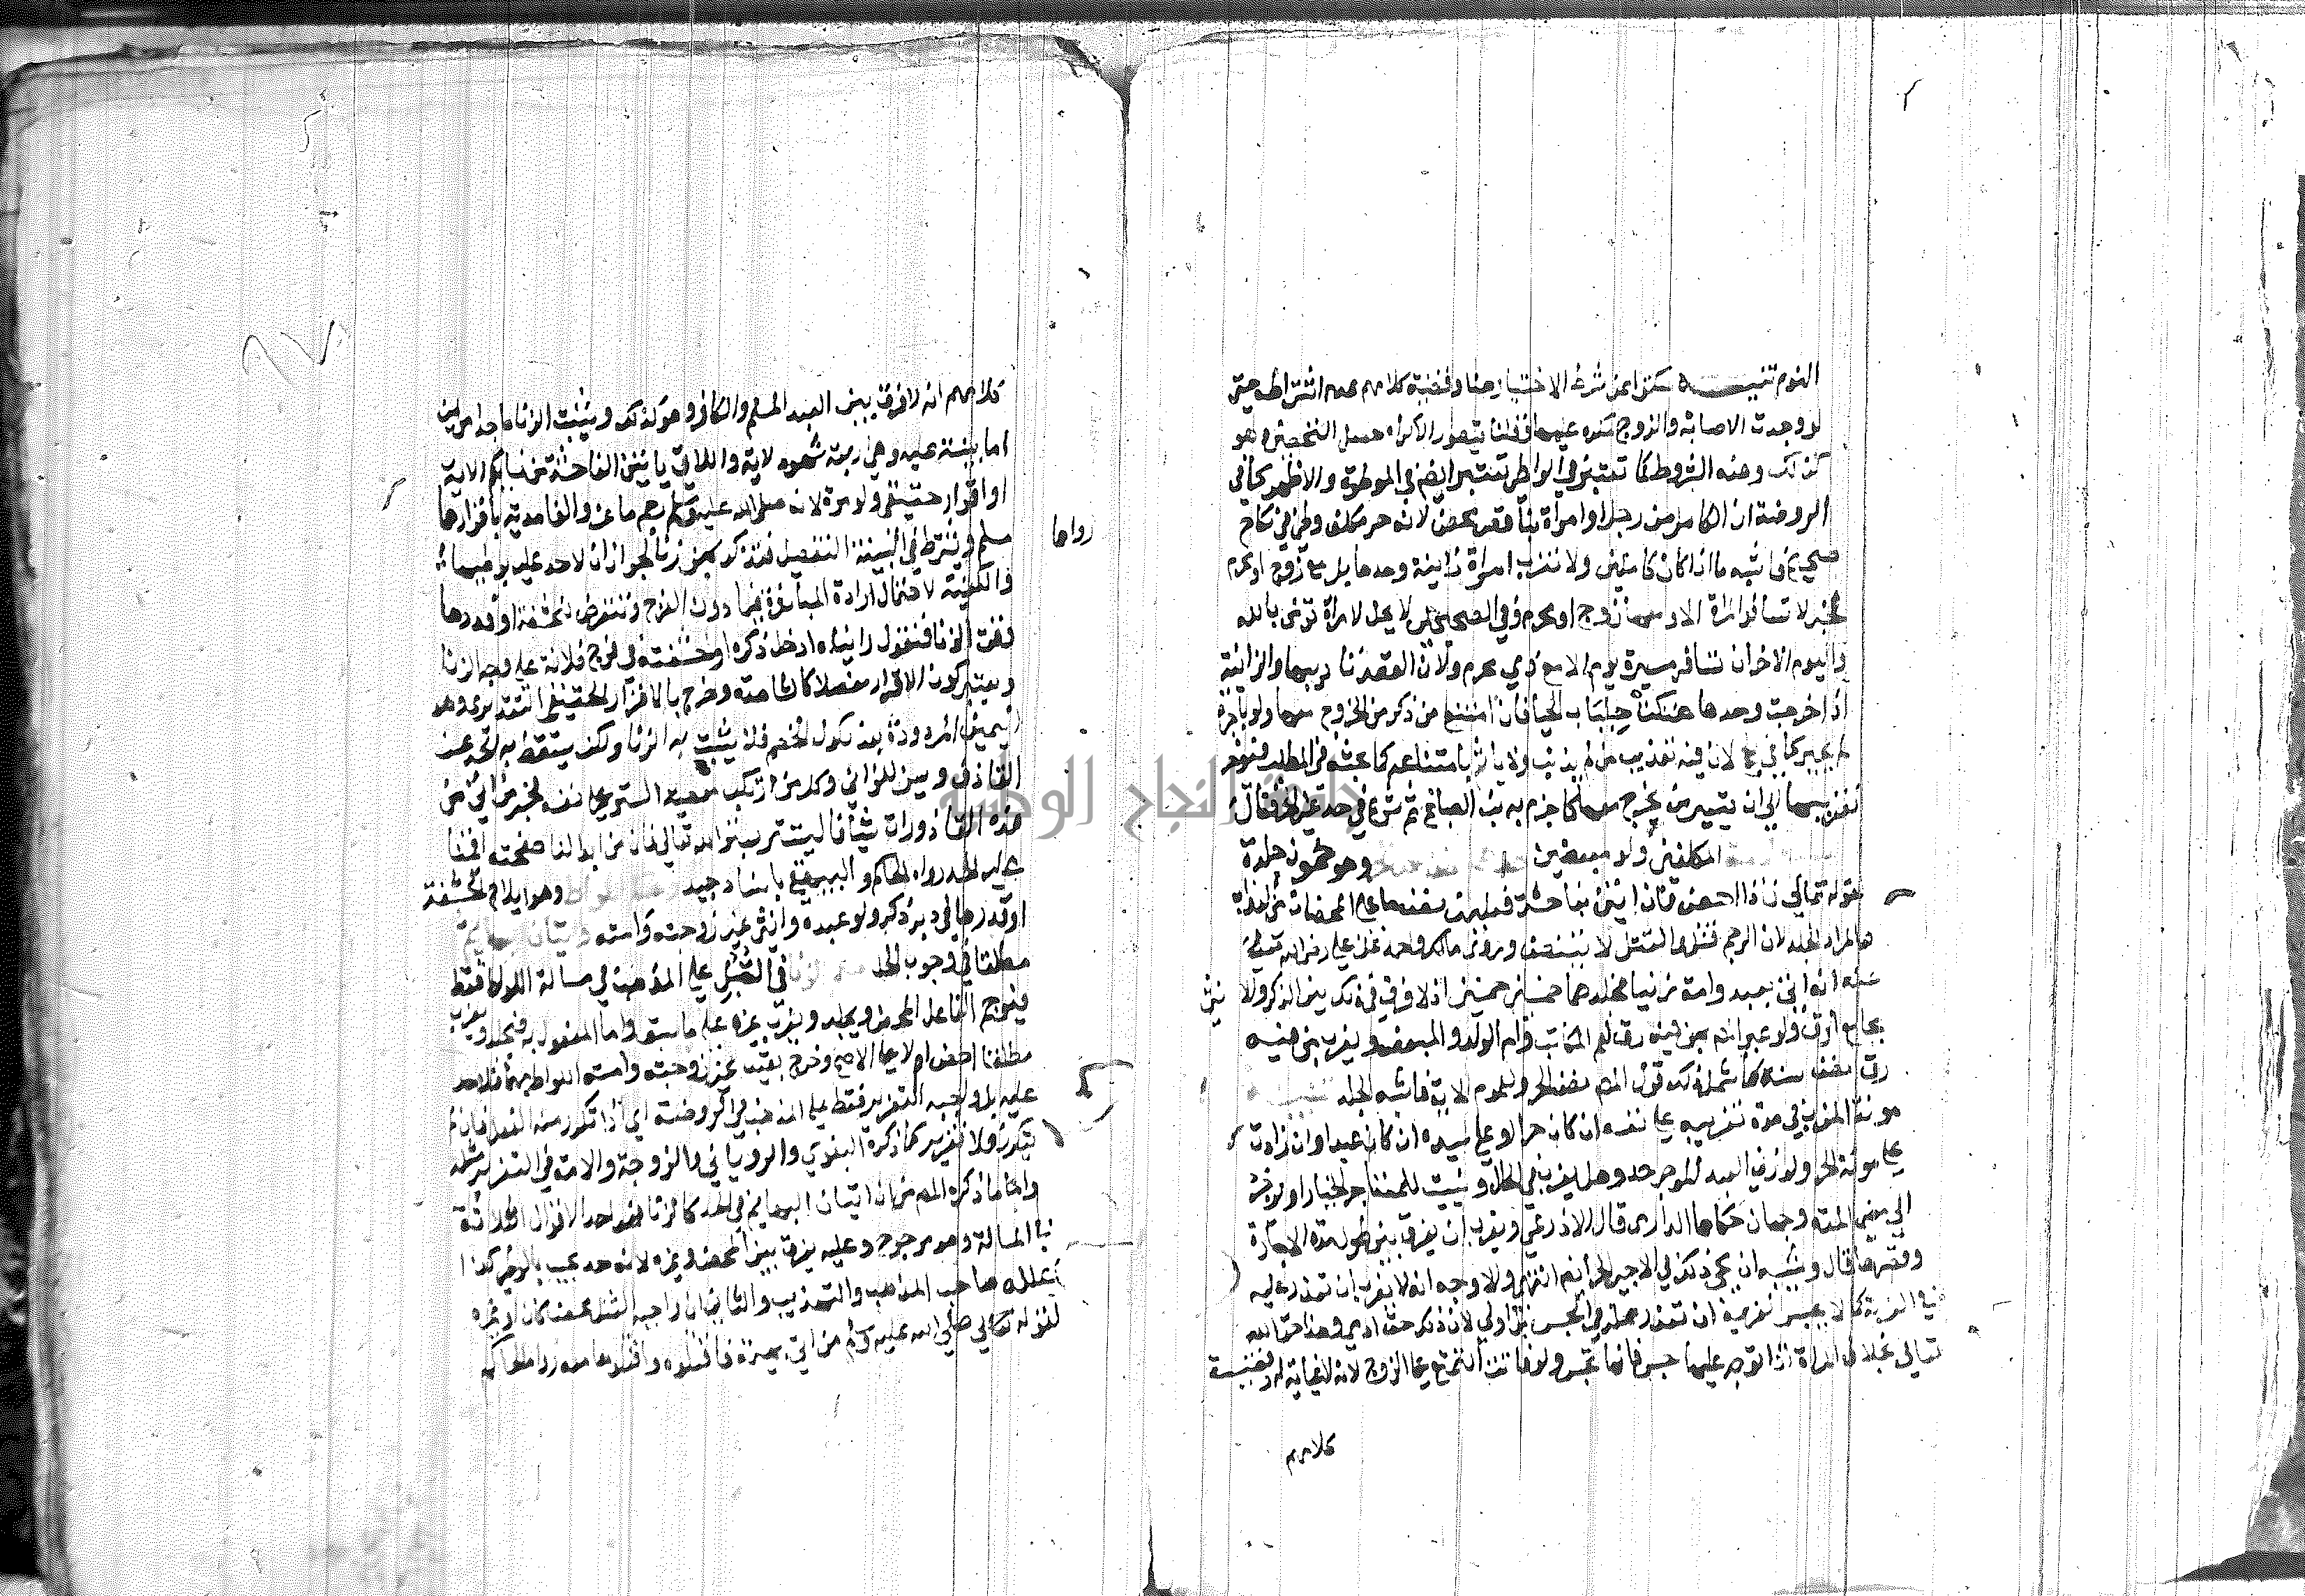 النوم تنبيه سكتوا عن شرط الاختيار هنا وقضية كلامهم عدم اشتراطه حتى
لو وجدت الاصابة والزوج مكره عليها وقلنا بتصور الاكراه حصل التحصين وهو
كذلك وهذه الشروط كما تعتبر في الواطئ تعتبر ايضا في الموطوءة والاظهر كما في
الروضة ان الكامل من رجل او امراة بناقص محصن لانه حر مكلف وطئ في نكاح
صحيح فاشبه ما اذا كان كاملين ولا تغرب امراة زانية وحدها بل مع زوج او محرم
لخبر لا تسافر امراة الا ومعها زوج او محرم وفي الصحيحين لا يحل لامراة تؤمن بالله
واليوم الاخر ان تسافر مسيرة يوم الا مع ذي محرم ولان القصد تاديبها والزانية
اذا خرجت وحدها هتكت جلباب الحيا فان امتنع من ذكر من الخروج معها ولو باجرة
لم يجبر كما في الحج لان فيه تعذيب من لم يذنب ولا ياثم بامتناعه كما بحثه في المطلب فيؤخر
تغريبها الى ان يتيسر من يخرج معها كما جزم به ابن الصباغ ثم شرع في حد غير الحر فقال
المكلفين ولو مبعضين وهو خمسون جلدة
لقوله تعالى فاذا احصن فان اتين بفاحشة فعليهن نصف ما على المحصنات من العذاب
والمراد الجلد لان الرجم قتل والقتل لا يتنصف وروى مالك واحمد عن علي رضي الله تعالى
عنه انه اتي بعبد وامة زنيا فجلدهما خمسين خمسين اذ لا فرق في ذلك بين الذكر والانثى
بجامع الرق ولو عبر المصنف بمن فيه رق لعم المكاتب وام الولد والمبعض ويغرب من فيه
رق نصف سنة كما شمل ذلك قول المصنف نصف الحر ولعموم الاية فاشبه الجلد
مونة المغرب في مدة تغريبه على نفسه ان كان حرا وعلى سيده ان كان عبدا وان زادت
على مونة الحضر ولو زنى العبد المؤجر حد وهل يغرب في الحال ويثبت للمستاجر الخيار او يؤخر
الى مضي المدة وجهان حكاهما الدارمي قال الاذرعي ويقرب ان يفرق بين طول مدة الاجارة
وقصرها قال ويشبه ان يجيء ذلك في الاجير الحر ايضا انتهى والاوجه انه لا يغرب ان تعذر عمله
في الغربة كما لا يحبس لغريمه ان تعذر عمله في الحبس بل اولى لان ذلك حق ادمي وهذا حق الله
تعالى بخلاف المراة اذا توجه عليها حبس فانها تحبس ولو فات التمتع على الزوج لانه لا نهاية له وقضية
كلامهم
كلامهم انه لا فرق بين العبد المسلم والكافر وهو كذلك ويثبت الزنا باحد امرين
اما ببينة عليه وهي اربعة شهود لاية واللاتي ياتين الفاحشة من نسائكم الاية
او اقرار حقيقي ولو مرة لانه صلى الله عليه وسلم رجم ماعز والغامدية باقرارهما
رواها
مسلم ويشترط في البينة التفصيل فتذكر بمن زنى لجواز ان لا حد عليه بوطئها
والكيفية لاحتمال ارادة المباشرة فيما دون الفرج وتتعرض للحشفة او قدرها
وقت الزنا فتقول رايناه ادخل ذكره او حشفته في فرج فلانة على وجه الزنا
ويعتبر كون الاقرار مفصلا كالشهادة وخرج بالاقرار الحقيقي التقديري وهو
اليمين المردودة بعد نكول الخصم فلا يثبت به الزنا ولكن يسقط به الحد عن
القاذف ويسن للزاني وكل من ارتكب معصية الستر على نفسه لخبر من اتى من
هذه القاذورات شيأ فليستتر بستر الله تعالى فان من ابدا لنا صفحته اقمنا
عليه الحد رواه الحاكم والبيهقي باسناد جيد وهو ايلاج الحشفة
او قدرها في دبر ذكر ولو عبده وانثى غير زوجته وامته واتيان البهايم
مطلقا في وجوب الحد في القبل على المذهب في مسالة اللواط فقط
فيرجم الفاعل المحصن ويجلد ويغرب غيره على ما سبق واما المفعول به فيجلد ويغرب
مطلقا احصن او لا على الاصح وخرج بقيد غير زوجته وامته اللواط بهما فلا حد
عليه بل واجبه التعزير فقط على المذهب في الروضة اي اذا تكرر منه الفعل فان لم
يتكرر فلا تعزير كما ذكره البغوي والروياني والزوجة والامة في التعزير مثله
واما ما ذكره المصنف من ان اتيان البهايم في الحد كالزنا فهو احد الاقوال الثلاثة
في المسالة وهو مرجوح وعليه يفرق بين المحصن وغيره لانه حد يجب بالوطئ كذا
علله صاحب المهذب والتهذيب والثاني ان واجبه القتل محصنا كان او غيره
لقوله صلى الله عليه وسلم من اتى بهيمة فاقتلوه واقتلوها معه رواه الحاكم